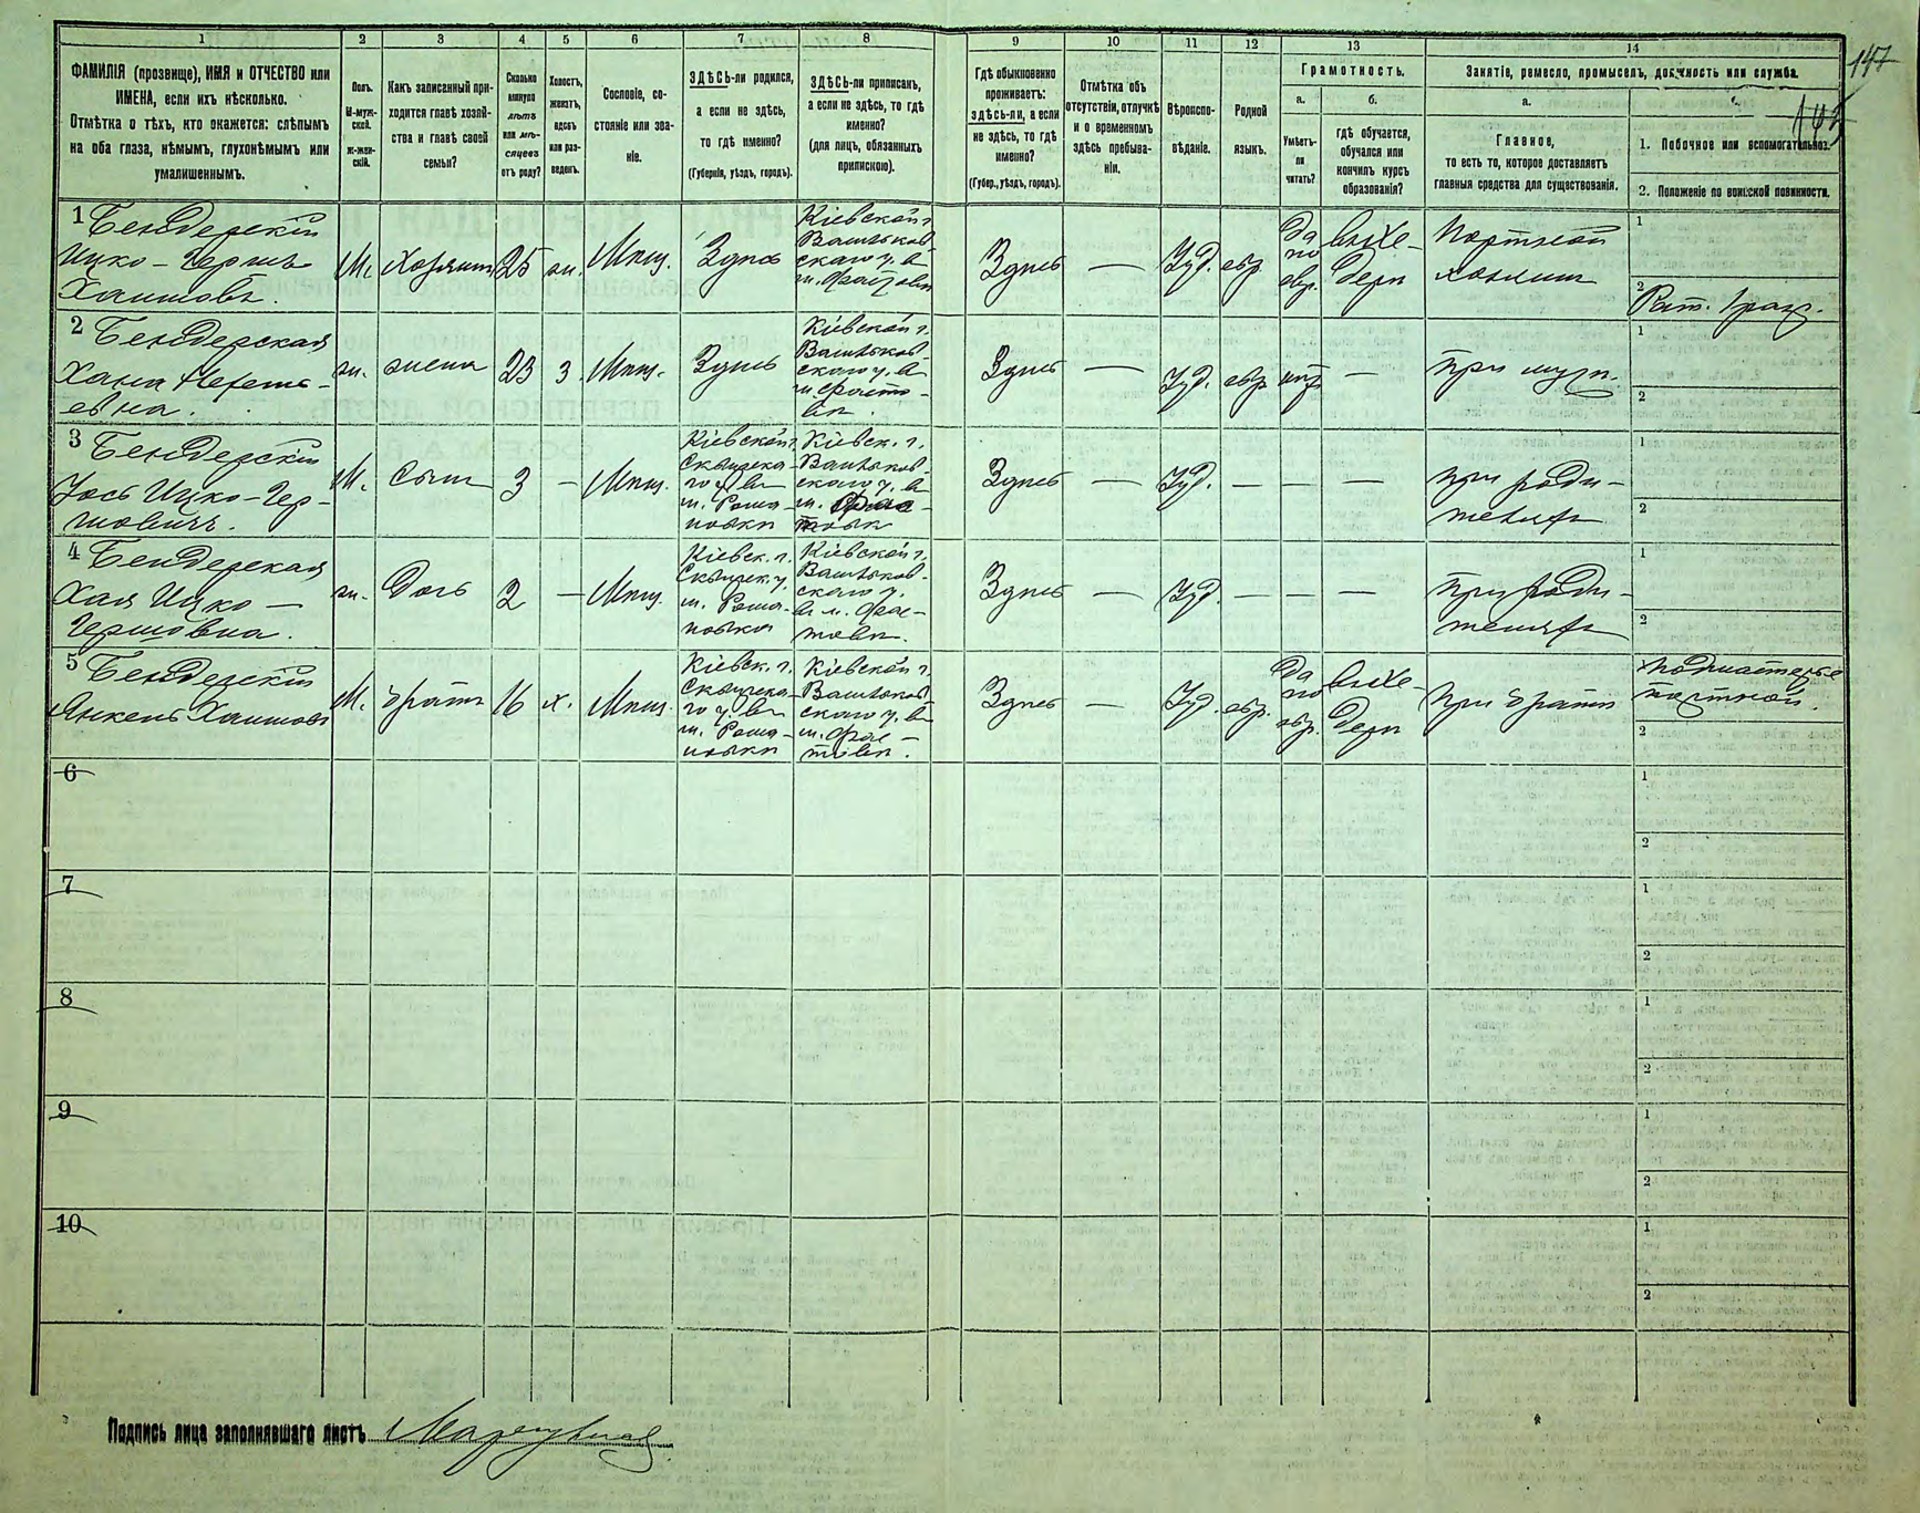 1 2 3 4 5 6 7 8 9 10 11 12 13 14
147
ФАМИЛІЯ (прозвище), ИМЯ и ОТЧЕСТВО или
ИМЕНА, если ихъ нѣсколько.
Отмѣтка о тѣхъ, кто окажется: слѣпымъ
на оба глаза, нѣмымъ, глухонѣмымъ или
умалишеннымъ.
Полъ.
М-муж-
ской.
Ж-жен-
скій.
Какъ записанный при-
ходится главѣ хозяй-
ства и главѣ своей
семьи?
Сколько
минуло
лѣтъ
или мѣ-
сяцевъ
отъ роду?
Холостъ,
женатъ,
вдовъ
или раз-
веденъ.
Сословіе, со-
стояніе или зва-
ніе.
ЗДѢСЬ-ли родился,
а если не здѣсь,
то гдѣ именно?
(Губернія, уѣздъ, городъ).
ЗДѢСЬ-ли приписанъ,
а если не здѣсь, то гдѣ
именно?
(для лицъ, обязанныхъ
припискою).
Гдѣ обыкновенно
проживаетъ:
здѣсь-ли, а если
не здѣсь, то гдѣ
именно?
(Губер., уѣздъ, городъ).
Отмѣтка объ
отсутствіи, отлучкѣ
и о временномъ
здѣсь пребыва-
ніи.
Вѣроиспо-
вѣданіе.
Родной
языкъ.
Грамотность.
а.
Умѣетъ-
ли
читать?
б.
гдѣ обучается,
обучался или
кончилъ курсъ
образованія?
Занятіе, ремесло, промыселъ, должность или служба.
а.
Главное,
то есть то, которое доставляетъ
главныя средства для существованія.
1. Побочное или вспомогательное.
2. Положеніе по воинской повинности.
1 Бендерскій
Ицко-Гершъ
Хаимовъ.
М. Хозяинъ 25 ж. Мѣщ. Здѣсь
Кіевской г.
Васильков-
скаго у. в
м. Фастовѣ
Здѣсь — Іуд. евр.
Да
по
евр.
въ Хе-
дерѣ
Портной
хозяинъ
1
2
2 Бендерская
Хана
евна.
ж. жена 23 З. Мѣщ. Здѣсь
Кіевской г.
Васильков-
скаго у. в
м. Фасто-
вѣ.
Здѣсь — Іуд. евр. нѣт —
при мужѣ.
1
2
3 Бендерскій
Іось Ицко-Гер-
шовичъ.
М. Сынъ 3 — Мѣщ.
Кіевской г.
Сквирска-
го у. в
м. Рома-
новки
Кіевск. г.
Васильков-
скаго у. в
м. Фас-
товѣ
Здѣсь — Іуд. — — —
при роди-
теляхъ
1
2
4 Бендерская
Хая Ицко-
Гершовна.
ж. Дочь 2 — Мѣщ.
Кіевск. г.
Сквирск. у.
м. Рома-
новки
Кіевской г.
Васильков-
скаго у.
в м. Фас-
товѣ.
Здѣсь — Іуд. — — —
при роди-
теляхъ
1
2
5 Бендерскій
Янкель Хаимовъ
М. братъ 16 х. Мѣщ.
Кіевск. г.
Сквирска-
го у. в
м. Рома-
новки
Кіевской г.
Васильков-
скаго у. в
м. Фас-
товѣ.
Здѣсь — Іуд. евр.
Да
по
евр.
въ Хе-
дерѣ
При братѣ
1 подмастерье
портной.
2
6
1
2
7
1
2
8
1
2
9
1
2
10
1
2
Подпись лица заполнявшаго листъ